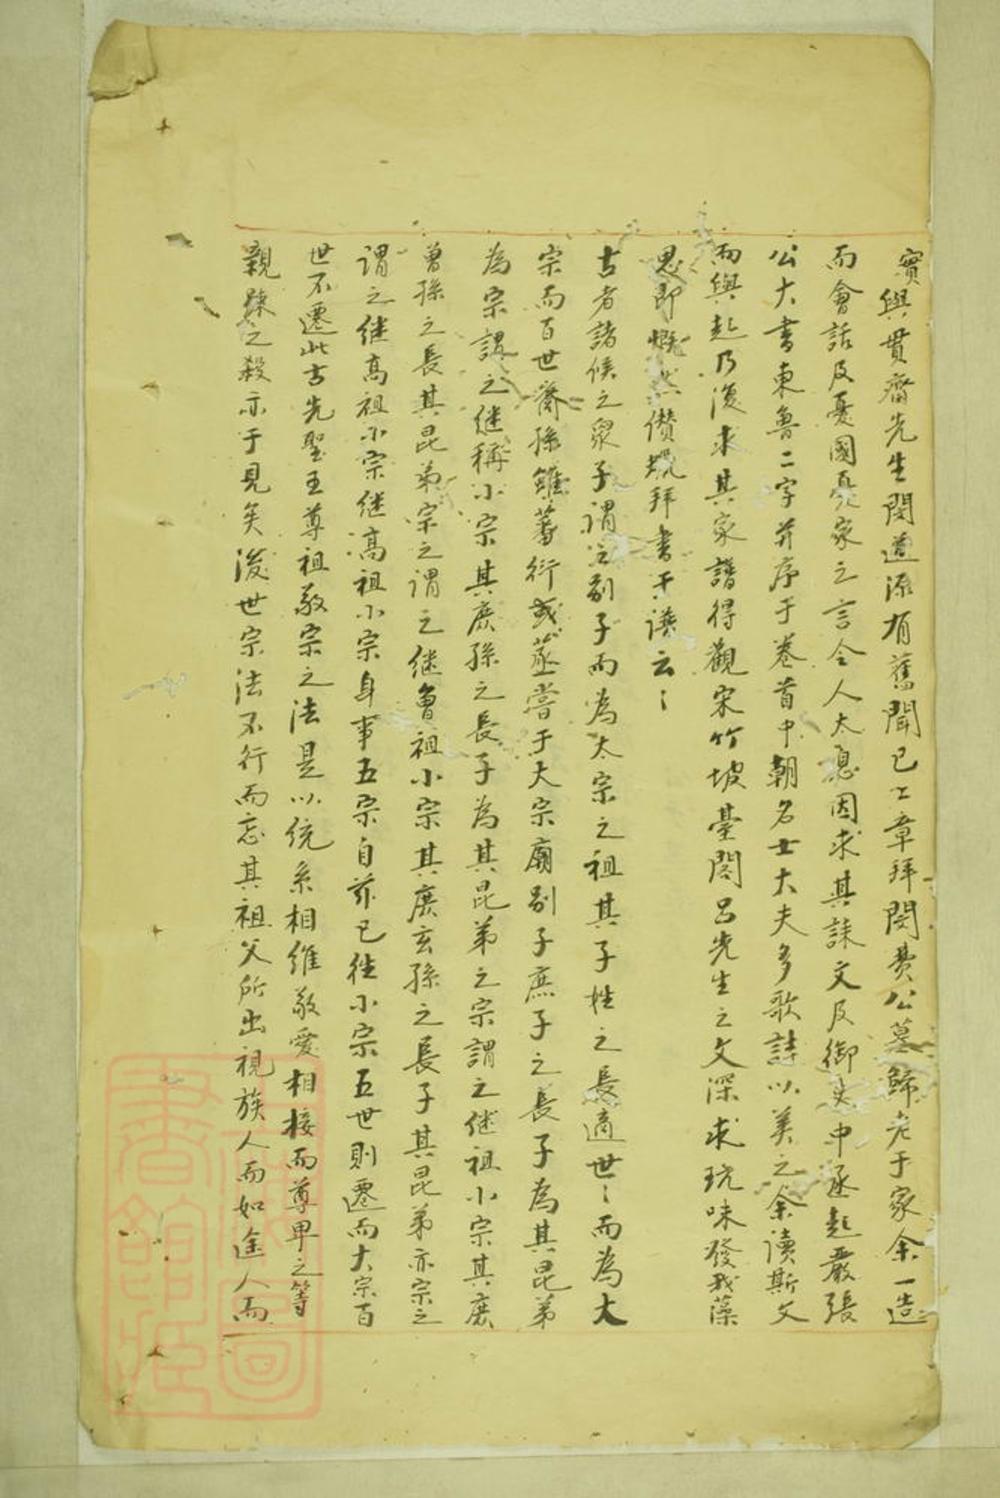 實與貫齋先生閔道源有舊聞已上章拜閔費公墓歸老于家余一造
而會話及憂國憂家之言令人太息因求其誄文及御史中丞起巖張
公大書東魯二字并序于卷首中朝名士大夫多歌詩以美之余讀斯文
而興起乃復求其家譜得觀宋竹坡臺閣呂先生之文深求玩味發我藻
思即慨然儹烷拜書于讀云〻
古者諸侯之衆子謂之別子而為太宗之祖其子姓之長適世〻而為大
宗而百世裔孫雖蕃衍或蒸嘗于大宗廟別子庶子之長子為其昆弟
為宗謂之継稱小宗其庶孫之長子為其昆弟之宗謂之継祖小宗其庶
曾孫之長其昆弟宗之謂之継曾祖小宗其庶玄孫之長子其昆弟亦宗之
謂之継高祖小宗継高祖小宗身事五宗自茲已徃小宗五世則遷而大宗百
世不遷此古先聖王尊祖敬宗之法是以統系相維敬愛相接而尊卑之等
親踈之殺亦于見矣後世宗法不行而忘其祖父所出視族人而如途人而
上海圖書館藏